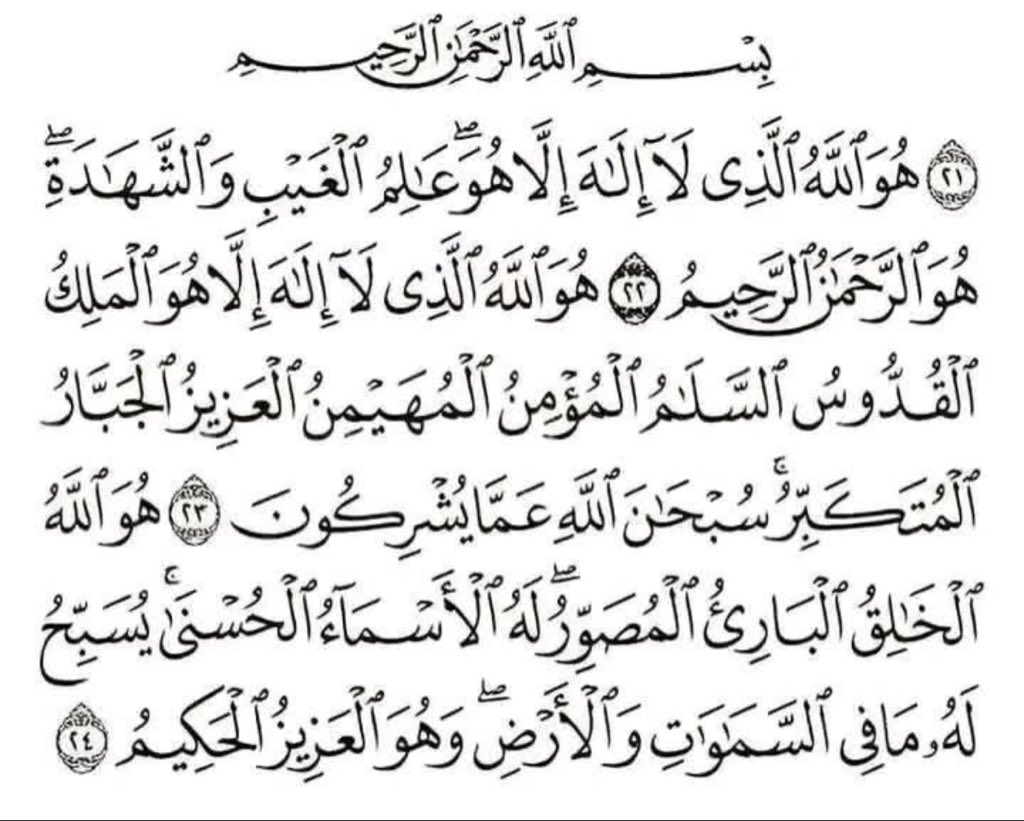 بِسْمِ ٱللَّهِ ٱلرَّحْمَٰنِ ٱلرَّحِيمِ
٢١ هُوَ ٱللَّهُ ٱلَّذِى لَآ إِلَٰهَ إِلَّا هُوَ ۖ عَٰلِمُ ٱلْغَيْبِ وَٱلشَّهَٰدَةِ ۖ
هُوَ ٱلرَّحْمَٰنُ ٱلرَّحِيمُ ٢٢ هُوَ ٱللَّهُ ٱلَّذِى لَآ إِلَٰهَ إِلَّا هُوَ ٱلْمَلِكُ
ٱلْقُدُّوسُ ٱلسَّلَٰمُ ٱلْمُؤْمِنُ ٱلْمُهَيْمِنُ ٱلْعَزِيزُ ٱلْجَبَّارُ
ٱلْمُتَكَبِّرُ ۚ سُبْحَٰنَ ٱللَّهِ عَمَّا يُشْرِكُونَ ٢٣ هُوَ ٱللَّهُ
ٱلْخَٰلِقُ ٱلْبَارِئُ ٱلْمُصَوِّرُ ۖ لَهُ ٱلْأَسْمَآءُ ٱلْحُسْنَىٰ ۚ يُسَبِّحُ
لَهُۥ مَا فِى ٱلسَّمَٰوَٰتِ وَٱلْأَرْضِ ۖ وَهُوَ ٱلْعَزِيزُ ٱلْحَكِيمُ ٢٤